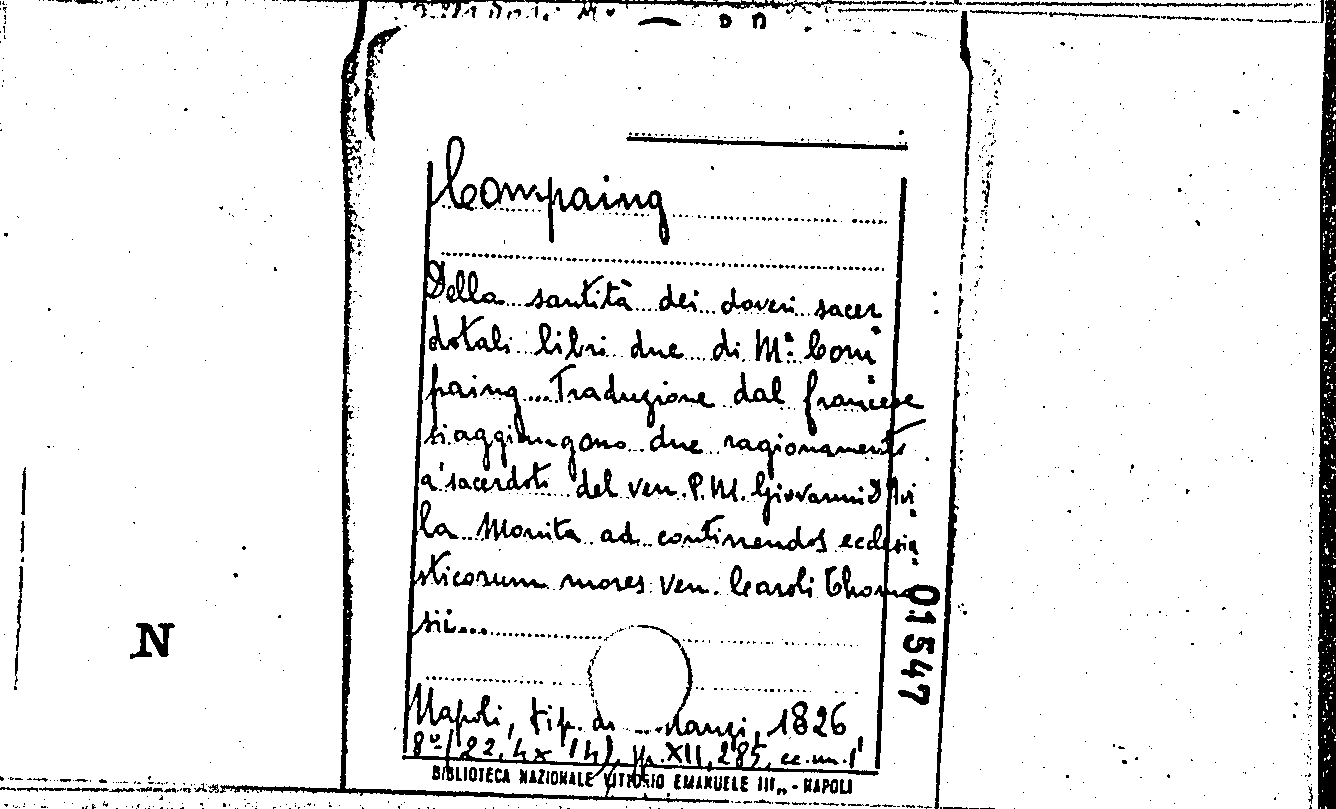 Compaing
Della santità dei doveri sacer
dotali libri due di M.r Com
paing... Traduzione dal francese
si aggiungono due ragionamenti
a' sacerdoti del ven. P. M. Giovanni D'Avi
la Monita ad continendos ecclesia
sticorum mores ven. Caroli Thoma
sii...
Napoli, tip. di ... nangi, 1826
8º (22,4 x 14), pp. XII, 285, cc. nn. 1
BIBLIOTECA NAZIONALE VITTORIO EMANUELE III,, - NAPOLI
01547
N